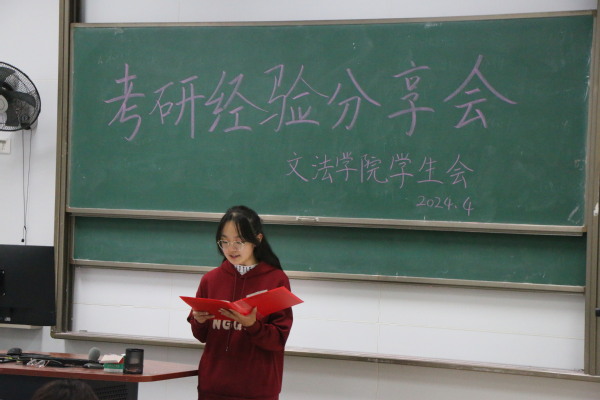 考研经验分享会
文法学院学生会
2024.4